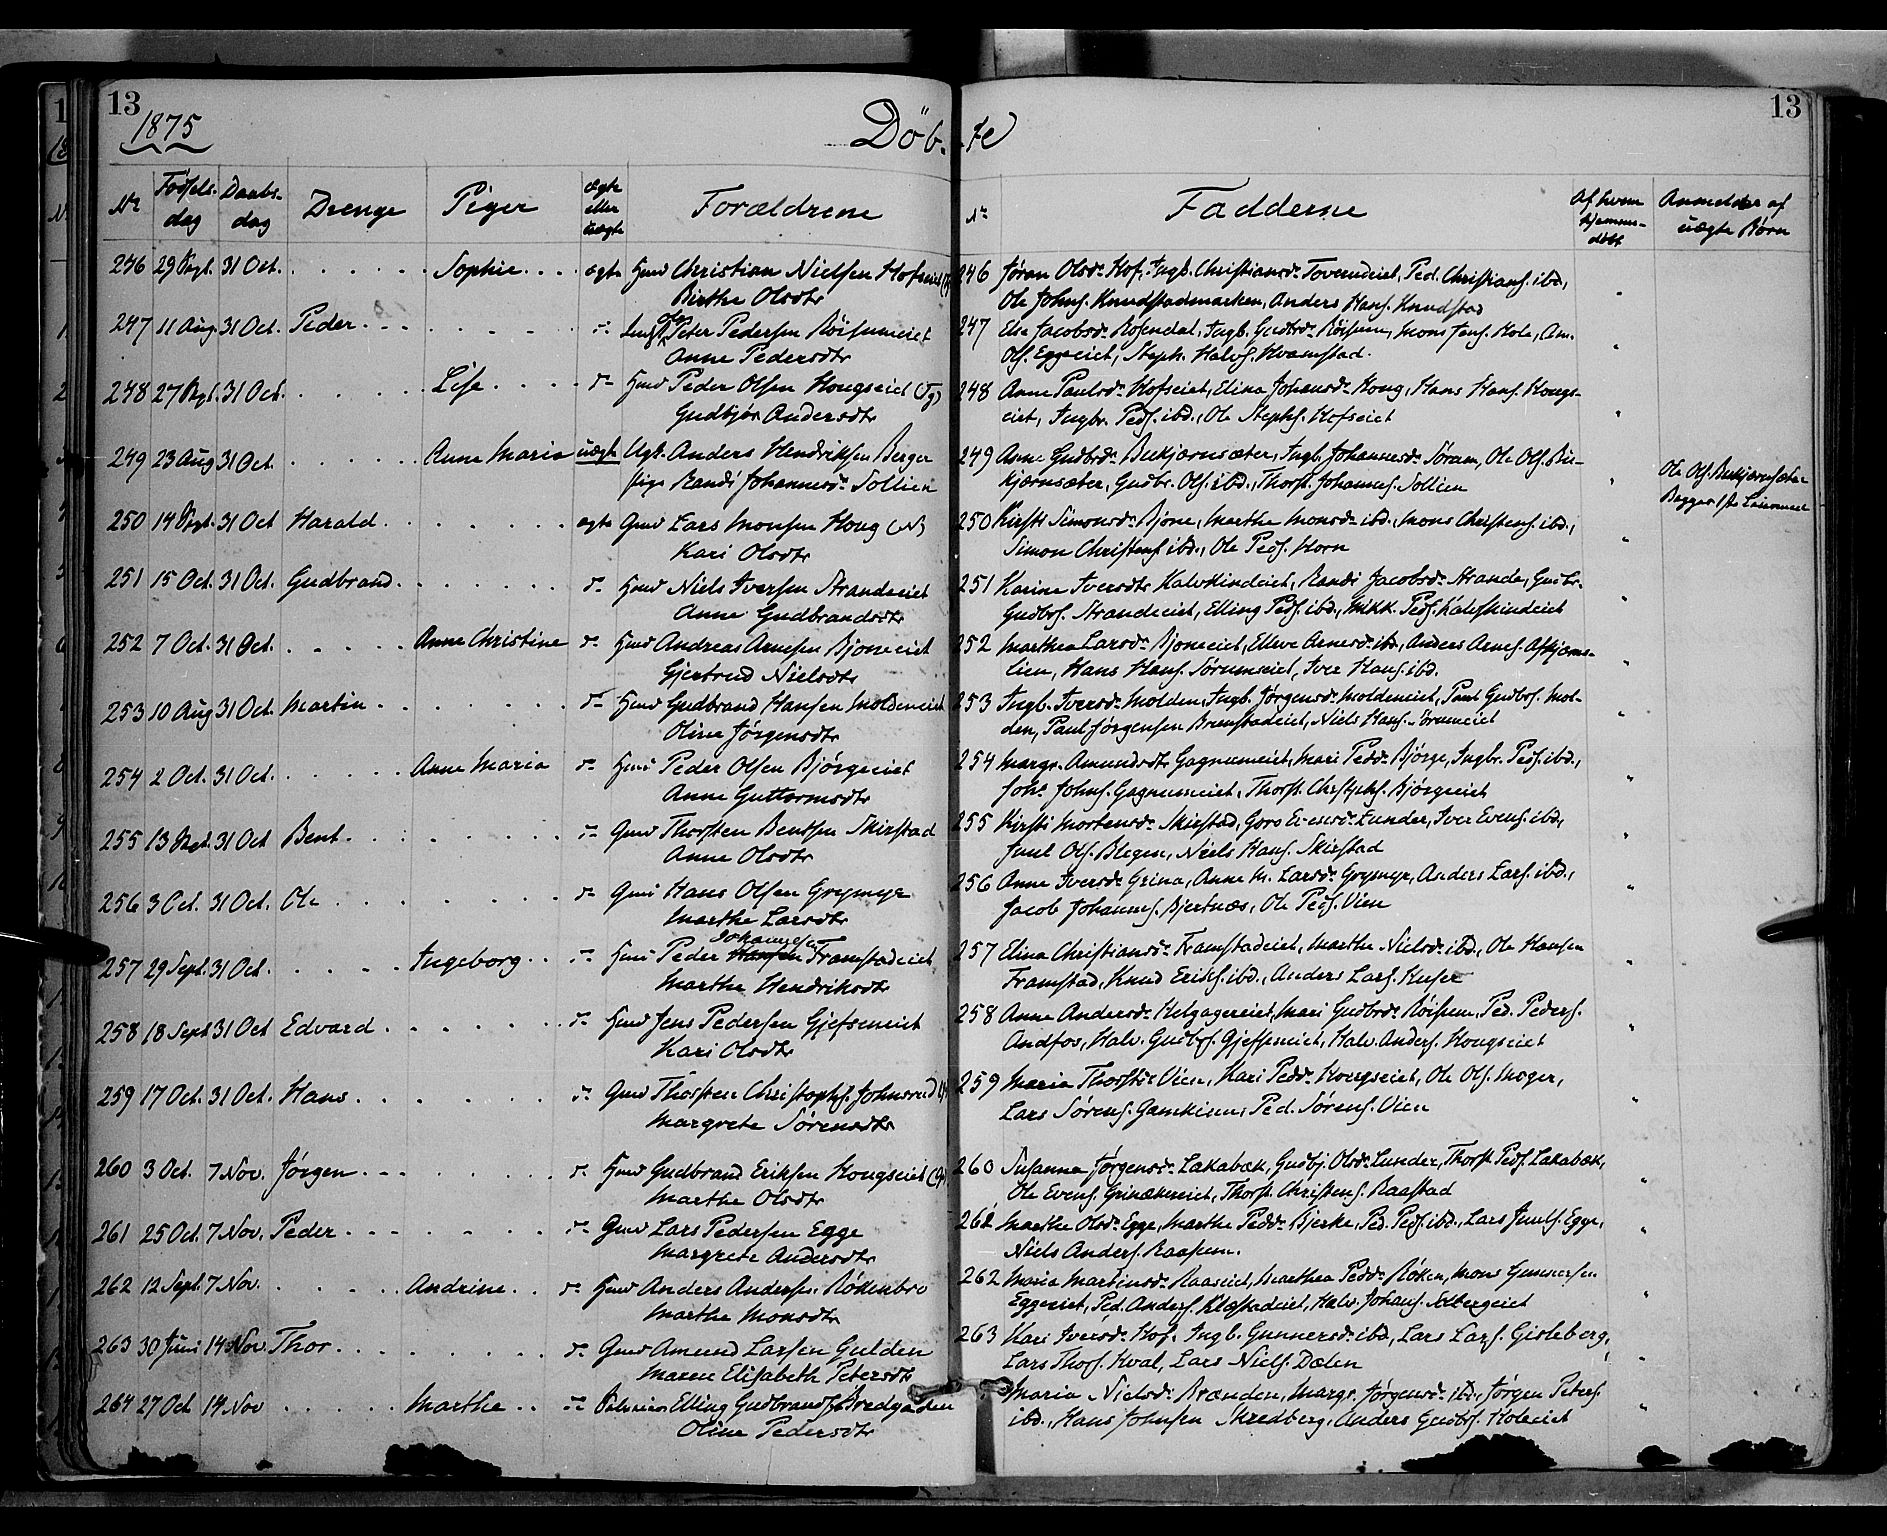 13
1875
Døb-
te
13
No Fødsels-dag Daabs-dag Drenge Piger ægte eller uægte Forældrene
No Fadderne Af hvem hjemme-døbt Anmelder af uægte Børn
246 29 Sept. 31 Oct. Sophie ægte Huusm Christian Nielsen
Birthe Olsdtr
247 11 Aug. 31 Oct. Peder Peter Pedersen
Anne Pedersdtr
248 27 Sept. 31 Oct. Lise Huusm Peder Olsen Hougseiet
Gudbjør Andersdtr
249 23 Aug 31 Oct. Anne Maria uægte Ugt. Anders Hendriksen Berger
Pige Randi Johannesd. Sollien
250 14 Sept. 31 Oct Harald ægte Gmd Lars Monsen Houg
Kari Olsdtr
251 15 Oct. 31 Oct. Gudbrand Niels Iversen Strandeeiet
Anne Gudbrandsdtr
252 7 Oct. 31 Oct. Anne Christine Andreas Arnesen Bjoneeiet
Gjertrud Nielsdtr
253 10 Aug 31 Oct. Martin Gudbrand Hansen Moldeneiet
Oline Jørgensdtr
254 2 Oct. 31 Oct. Anne Maria Peder Olsen Bjørgeeiet
Anne Guttormsdtr
255 13 31 Oct Bent Gmd Thorsten Bentsen Skirstad
Anne Olsdtr
256 3 Oct. 31 Oct. Ole Hans Olsen Grymyr
Marthe Larsdtr
Johannesen
257 29 Sept. 31 Oct. Ingeborg Peder Hansen Framstadeiet
Marthe Hendriksdtr
258 18 Sept 31 Oct Edvard Jens Pedersen Gjefseneiet
Kari Olsdtr
259 17 Oct. 31 Oct. Hans Gmd Thorsten Christophs. Johnsrud
Margrete Sørensdtr
260 3 Oct. 7 Nov. Jørgen Gudbrand Eriksen Hougseiet
Marthe Olsdtr
261 25 Oct. 7 Nov. Peder Gmd Lars Pedersen Egge
Margrete Andersdtr
262 12 Sept. 7 Nov. Andrine Anders Andersen Røkenbro
Marthe Monsdtr
263 30 Juni 14 Nov. Thor Gmd Amund Larsen Gulden
Maren Elisabeth Petersdtr
264 27 Oct 14 Nov Marthe Elling Gudbrands. Bredgaarden
Oline Pedersdtr
246 Jøran Olsdr Hof, Ingb. Christiansdr Toverudeiet, Ped. Christians. ibd.,
Ole Johns. Knudstadmarken, Anders Hans. Knudstad
247 Else Jacobsdr Rosendal, Ingb. Gudbrdr Røisum, Mons Jens. Hole, Am.
Ols. Eggeeiet, Steph. Halvs. Kvamstad.
248 Anne Paulsdr Hofseiet, Elina Johansdr Houg, Hans Hans. Hougs-
eiet, Ingbr. Peds. ibd., Ole Stephs. Hofseiet
249 Anne Gudbrdr Ingb. Johannesdr Sørum, Ole Ols.
Gudbr. Ols. ibd., Thorst. Johannes. Sollien
250 Kirsti Simonsdr Bjone, Marthe Monsdr ibd., Mons Christens. ibd.,
Simon Christens. ibd., Ole Peds. Horn
251 Karine Iversdtr Kalvskindeiet, Randi Jacobsdr Strande, Gudbr.
Gudbrs. Strandeeiet, Elling Peds. ibd., Mikk. Peds. Kalvskindeiet
252 Marthea Larsdr Bjoneeiet, Eleve Arnesdr ibd., Anders Arnes. Askjems-
lien, Hans Hans. Sørumseiet, Iver Hans. ibd.
253 Ingb. Iversdr Molden, Ingb. Jørgensdr Moldeneiet, Paul Gudbrs. Mol-
den, Paul Jørgensen Niels Hans. Sørumeiet
254 Margr. Amundsdtr Gagnumeiet, Mari Peddr Bjørge, Ingbr. Peds. ibd.,
Johs Johns. Gagnumeiet, Thorst. Bjørgeeiet
255 Kirsti Mortensdr Skirstad, Goro Evensdr Lunder, Iver Evens. ibd.,
Juul Ols. Blegen, Niels Hans. Skirstad
256 Anne Iversdr Grina, Anne M. Larsdr Grymyr, Anders Lars. ibd.,
Jacob Johannes. Bjertnæs, Ole Peds. Vien
257 Elina Christiansdr Framstadeiet, Marthe Nielsdr ibd., Ole Hansen
Framstad, Knud Eriks. ibd., Anders Lars.
258 Anne Andersdr Helgagereiet, Mari Gudbrdr Røisum, Ped. Peders.
Andfos, Halv. Gudbrs. Halv. Anders. Hougseiet
259 Maria Thorstdr Vien, Kari Peddr Hougseiet, Ole Ols. Moger,
Lars Sørens. Gamkinn, Ped. Sørens. Vien
260 Susanna Jørgensdr Lakabæk, Gudbj. Olsdr Lunder, Thorst. Peds. Lakabæk,
Ole Evens. Thorst. Christens. Raastad
261 Marthe Olsdr Egge, Marthe Peddr Bjerke, Ped. Peds. ibd., Lars Juuls. Egge,
Niels Anders. Raasum.
262 Maria Martinsdr Raaseiet, Marthea Peddr Røken, Mons Gunnersen
Eggeeiet, Ped. Anders. Klæstadeiet, Halv. Johans.
263 Kari Iversdr Hof, Ingb. Gunnersdr ibd., Lars Lars. Gisleberg,
Lars Thors. Hval, Lars Niels. Dælen
Maria Nielsdr Brænden, Margr. Jørgensdr ibd., Jørgen Peters.
ibd., Hans Johnsen Skredberg, Anders Gudbrs. Holeeiet